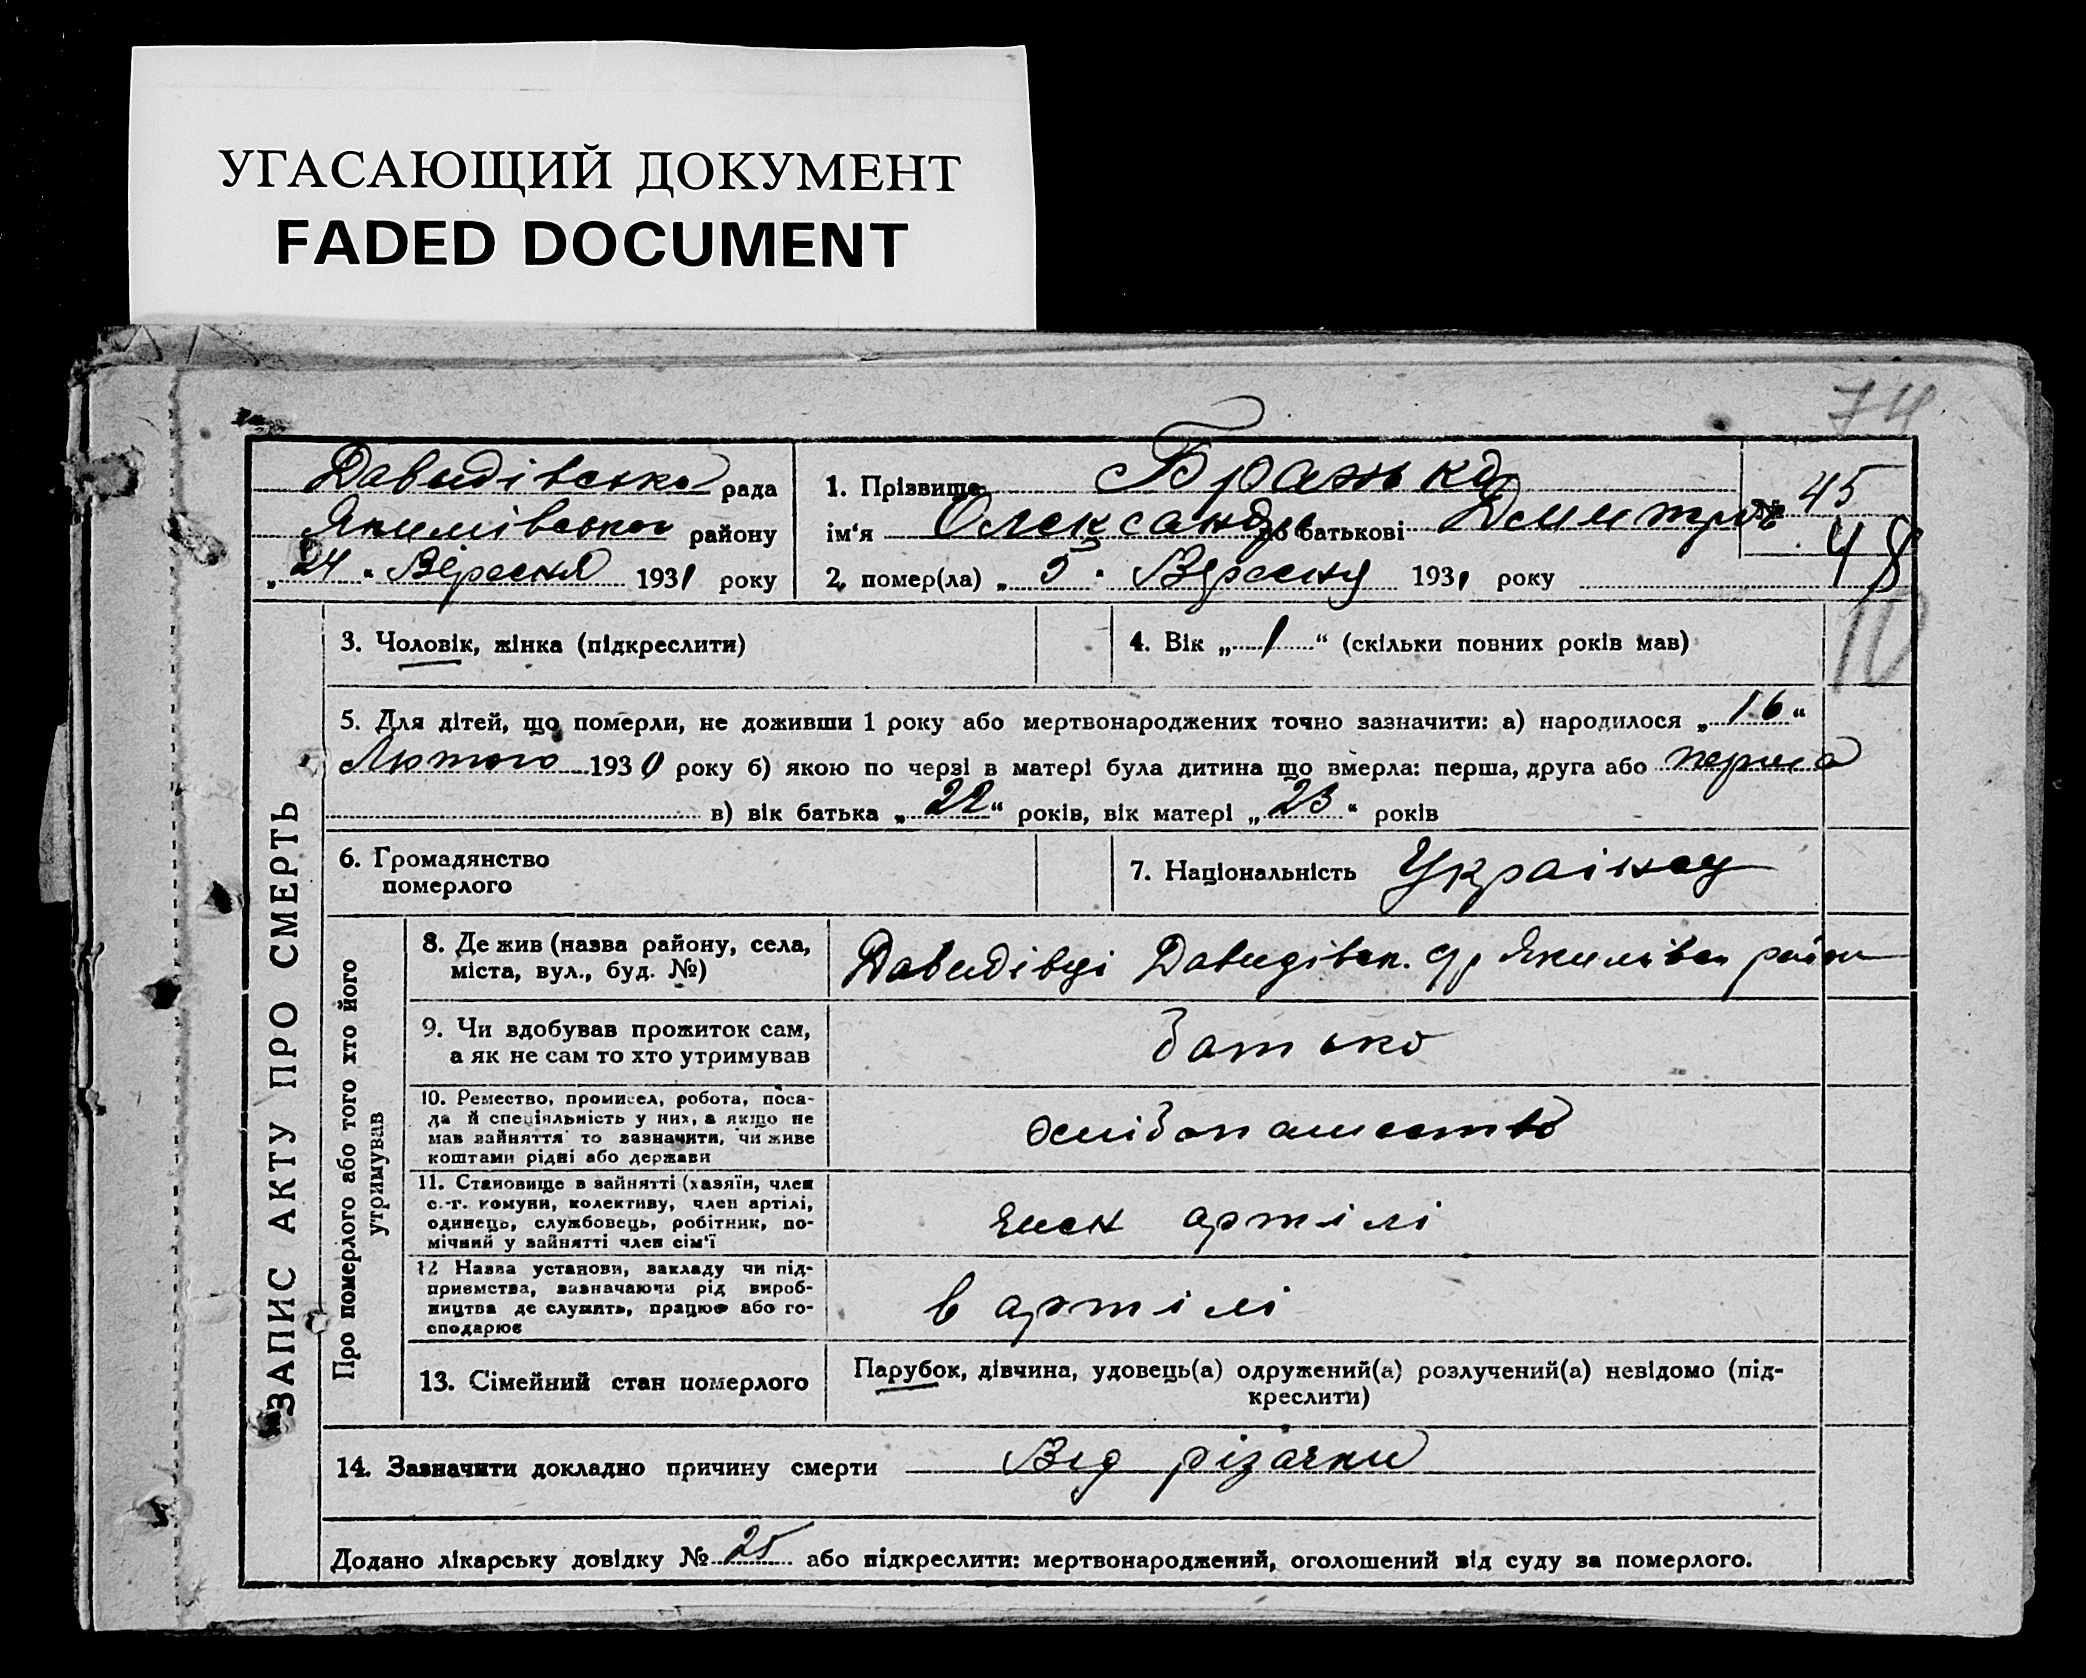 УГАСАЮЩИЙ ДОКУМЕНТ
FADED DOCUMENT
74
Давидівська рада
Якимівського району
„24“ Вересня 1931 року
1. Прізвище Бранько
ім‘я Олександр по батькові Дмитров
№ 45
48
2. помер(ла) „5“ Вересня 1931 року
ЗАПИС АКТУ ПРО СМЕРТЬ
3. Чоловік, жінка (підкреслити)
4. Вік „1“ (скільки повних років мав)
5. Для дітей, що померли, не доживши 1 року або мертвонароджених точно зазначити: а) народилося „16“
Лютого 1930 року б) якою по черзі в матері була дитина що вмерла: перша, друга або перша
в) вік батька „22“ років, вік матері „23“ років
6. Громадянство
померлого
7. Національність
Про померлого або того хто його
утримував
8. Де жив (назва району, села,
міста, вул., буд. №)
Давидівці Давидівск. с/р Якимівск район
9. Чи вдобував прожиток сам,
а як не сам то хто утримував
батько
10. Ремество, промисел, робота, поса-
да й спеціяльність у них, а якщо не
мав зайняття то зазначити, чи живе
коштами рідні або держави
хлібопашество
11. Становище в зайнятті (хазяїн, член
с.-г. комуни, колективу, член артілі,
одинець, службовець, робітник, по-
мічний у зайнятті член сім‘ї
член артілі
12 Назва установи, закладу чи під-
приємства, зазначаючи рід вироб-
ництва де служить, працює або го-
сподарює
в артілі
13. Сімейний стан померлого
Парубок, дівчина, удовець(а) одружений(а) розлучений(а) невідомо (під-
креслити)
14. Зазначити докладно причину смерти Від різачки
Додано лікарську довідку № 25 або підкреслити: мертвонароджений, оголошений від суду за померлого.